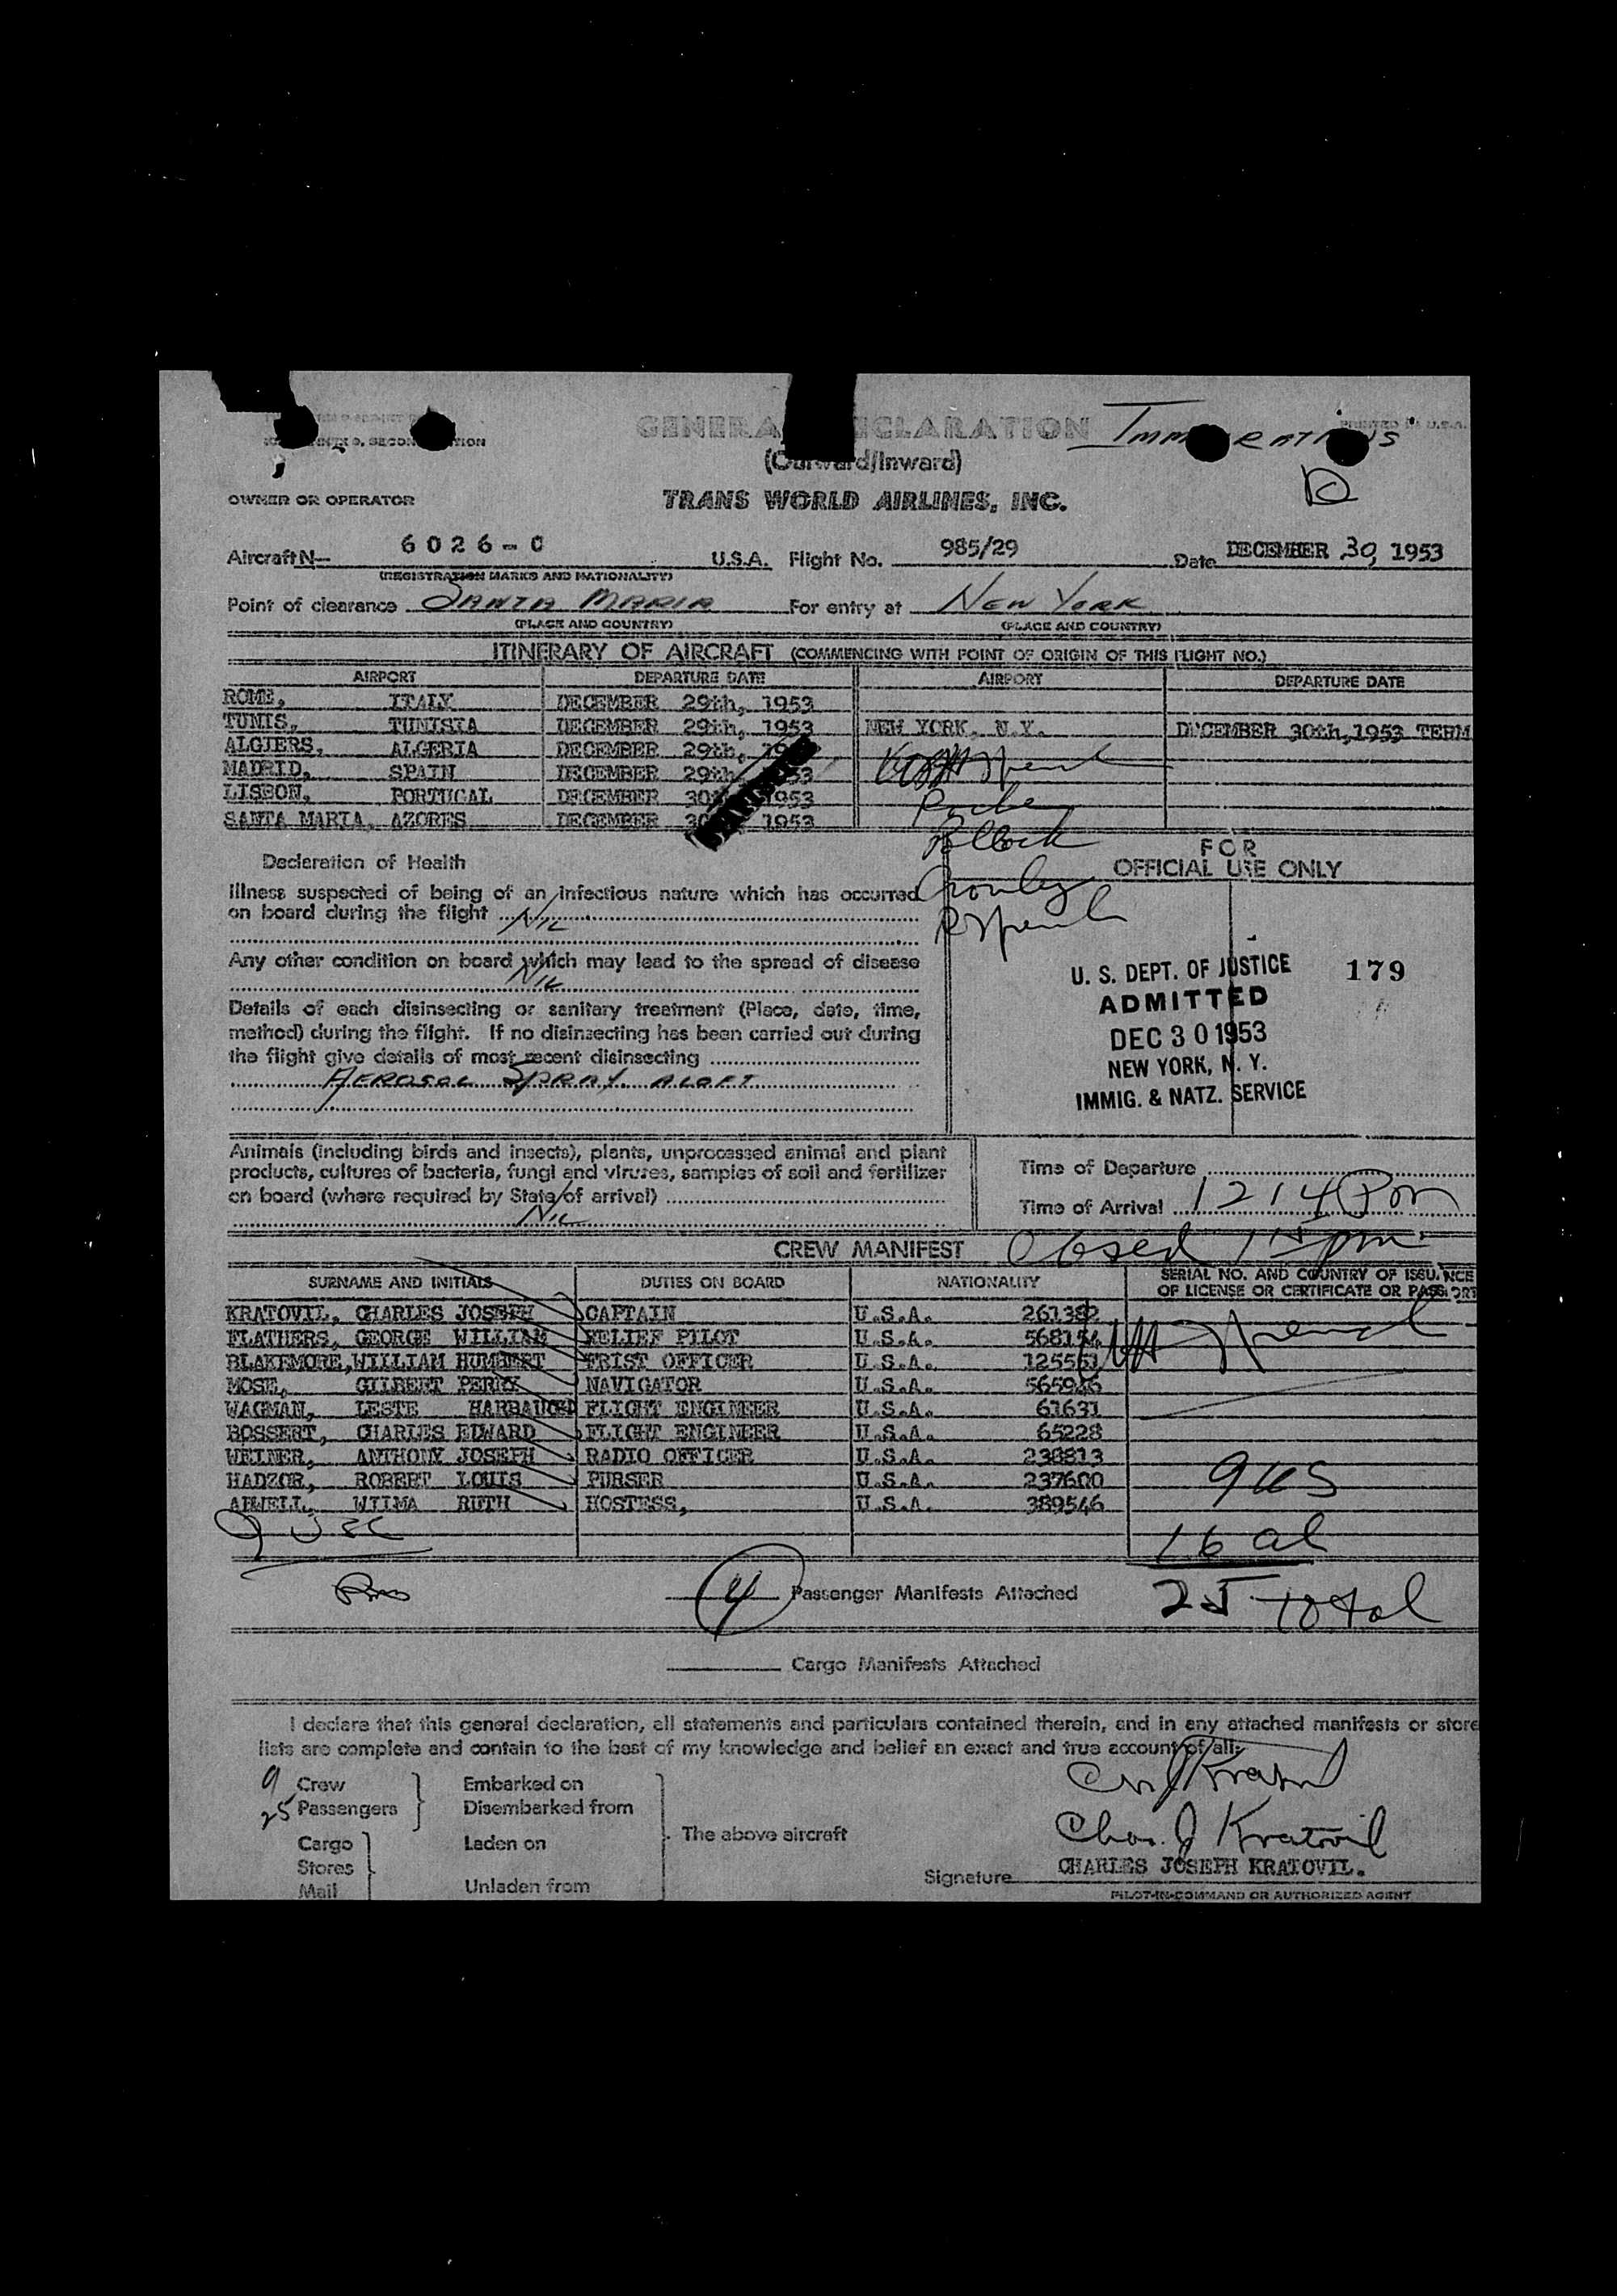 GENERAL DECLARATION
IMMIGRATIONS
(Outward/Inward)
OWNER OR OPERATOR TRANS WORLD AIRLINES, INC.
Aircraft N— 6026-C U.S.A. Flight No. 985/29 Date DECEMBER 30, 1953
(REGISTRATION MARKS AND NATIONALITY)
Point of clearance SANTA MARIA For entry at NEW YORK
(PLACE AND COUNTRY) (PLACE AND COUNTRY)
ITINERARY OF AIRCRAFT (COMMENCING WITH POINT OF ORIGIN OF THIS FLIGHT NO.)
AIRPORT DEPARTURE DATE AIRPORT DEPARTURE DATE
ROME, ITALY DECEMBER 29th, 1953
TUNIS, TUNISIA DECEMBER 29th, 1953 NEW YORK, N.Y. DECEMBER 30th,1953 TERM
ALGIERS, ALGERIA DECEMBER 29th,
MADRID, SPAIN DECEMBER 29th
LISBON, PORTUGAL DECEMBER 30 1953
SANTA MARIA, AZORES DECEMBER 30 1953
Pollock
FOR
OFFICIAL USE ONLY
Declaration of Health
Illness suspected of being of an infectious nature which has occurred
on board during the flight NIL
Any other condition on board which may lead to the spread of disease
NIL
Details of each disinsecting or sanitary treatment (Place, date, time,
method) during the flight. If no disinsecting has been carried out during
the flight give details of most recent disinsecting
AEROSOL SPRAY ALOFT
U. S. DEPT. OF JUSTICE 179
ADMITTED
DEC 30 1953
NEW YORK, N. Y.
IMMIG. & NATZ. SERVICE
Animals (including birds and insects), plants, unprocessed animal and plant
products, cultures of bacteria, fungi and viruses, samples of soil and fertilizer
on board (where required by State of arrival)
NIL
Time of Departure
Time of Arrival 1214 Pm
CREW MANIFEST
SURNAME AND INITIALS DUTIES ON BOARD NATIONALITY SERIAL NO. AND COUNTRY OF ISSUANCE
OF LICENSE OR CERTIFICATE OR PASSPORT
KRATOVIL, CHARLES JOSEPH CAPTAIN U.S.A. 261382
FLATHERS, GEORGE WILLIAM RELIEF PILOT U.S.A. 568154
BLAKEMORE,WILLIAM HUMBERT FRIST OFFICER U.S.A. 125553
MOSE, GILBERT PERRY NAVIGATOR U.S.A. 565946
WAGMAN, LESTE HARBAUGH FLIGHT ENGINEER U.S.A. 61631
BOSSERT, CHARLES EDWARD FLIGHT ENGINEER U.S.A. 65228
WEINER, ANTHONY JOSEPH RADIO OFFICER U.S.A. 238813
HADZOR, ROBERT LOUIS PURSER U.S.A. 237600
WILMA RUTH HOSTESS, U.S.A. 389546
9 US
16 al
4 Passenger Manifests Attached 25 total
Cargo Manifests Attached
I declare that this general declaration, all statements and particulars contained therein, and in any attached manifests or store
lists are complete and contain to the best of my knowledge and belief an exact and true account of all:
9 Crew Embarked on
25 Passengers Disembarked from
Cargo Laden on The above aircraft
Stores
Mail Unladen from
Chas. J Kratovil
Signature CHARLES JOSEPH KRATOVIL.
PILOT-IN-COMMAND OR AUTHORIZED AGENT